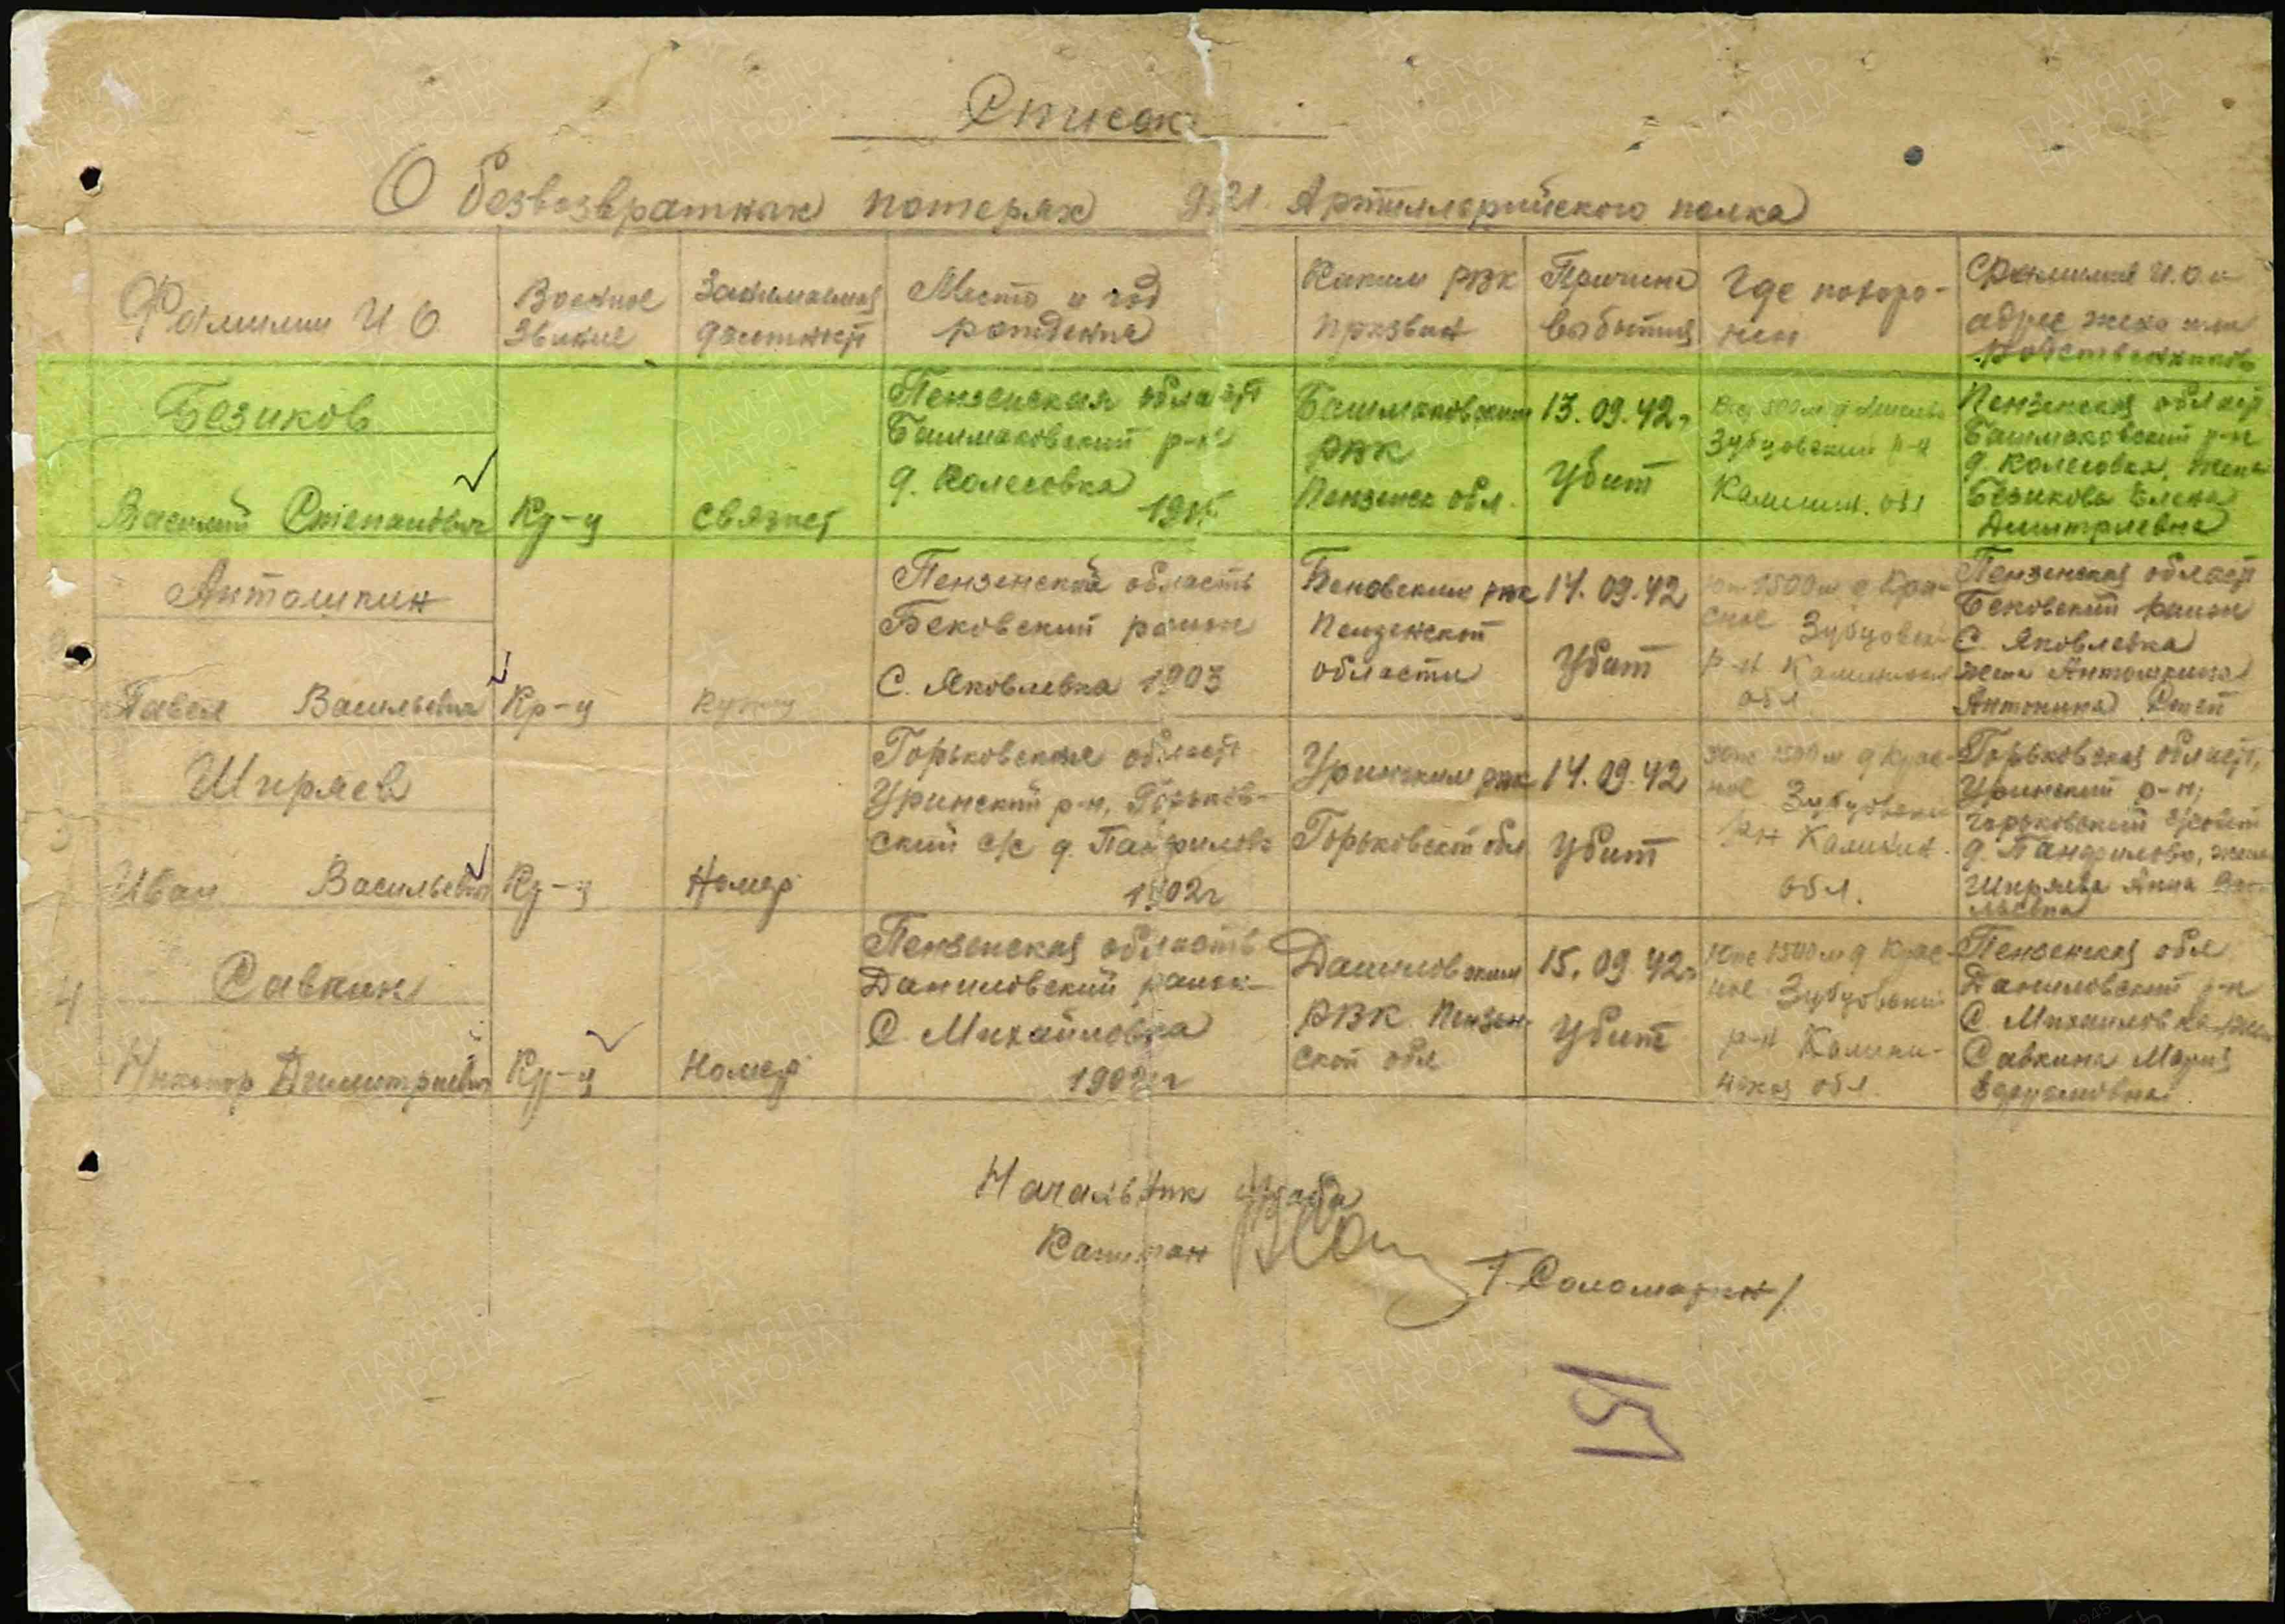 Список
О безвозвратных потерях 921 Артиллерийского полка
Фамилии И О
Военное
звание
Занимаемая
должност
Место и год
рождения
Каким РВК
призван
Причина
выбытия
Где похоро-
нен
Фамилия И.О. и
адрес жены или
родственников
Безиков
Василий Степанович
Кр-ц
связист
Пензенская област
Башмаковский р-н
д. Колесовка
Башмаковским
РВК
Пензенс обл.
13.09.42г
Убит
Зубцовский р-н
Калинин. обл
Пензенская област
Башмаковский р-н
д. Колесовка, жена
Безикова Елена
Дмитриевна
Антошкин
Павел Васильевич
Кр-ц
Пензенская область
Бековский район
С. Яковлевка 1903
Бековским рвк
Пензенской
области
14.09.42
Убит
1500 м д Кра-
сное Зубцовский
р-н Калининская
обл
Пензенская област
Бековский район
С. Яковлевка
жена Антошкина
Антонина
Ширяев
Иван Васильевич
Кр-ц
Номер
Горьковская област
Уринский р-н, Горьков-
ский с/с д. Панфилово
1902г
Уринским рвк
Горьковской обл
14.09.42
Убит
1500 м д Крас-
ное Зубцовский
р-н Калинин.
обл.
Горьковская област,
Уринский р-н,
Горьковский с/совет
д. Панфилово, жена
Ширяева Анна Васи-
льевна
4
Савкин
Никонор Дмитриевич
Кр-ц
Номер
Пензенская область
Даниловский район
С. Михайловка
Даниловским
РВК Пензен-
ской обл
15.09.42г
Убит
1500 м д Крас-
ное Зубцовский
р-н Калини-
нская обл.
Пензенская обл
Даниловский р-н
С. Михайловка жена
Савкина Мария
Начальник штаба
Капитан
/Соломатин/
151